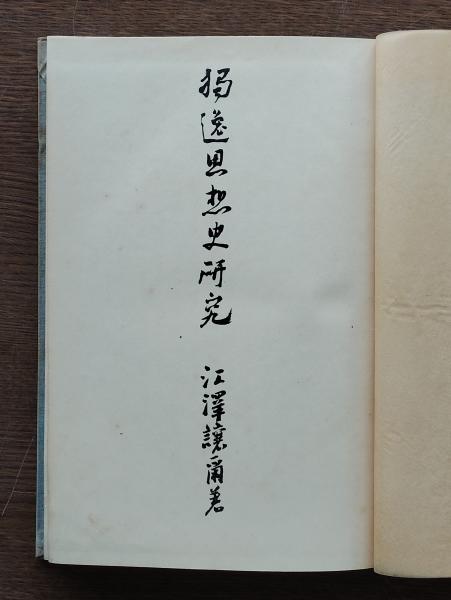 獨逸思想史研究
江澤讓爾著